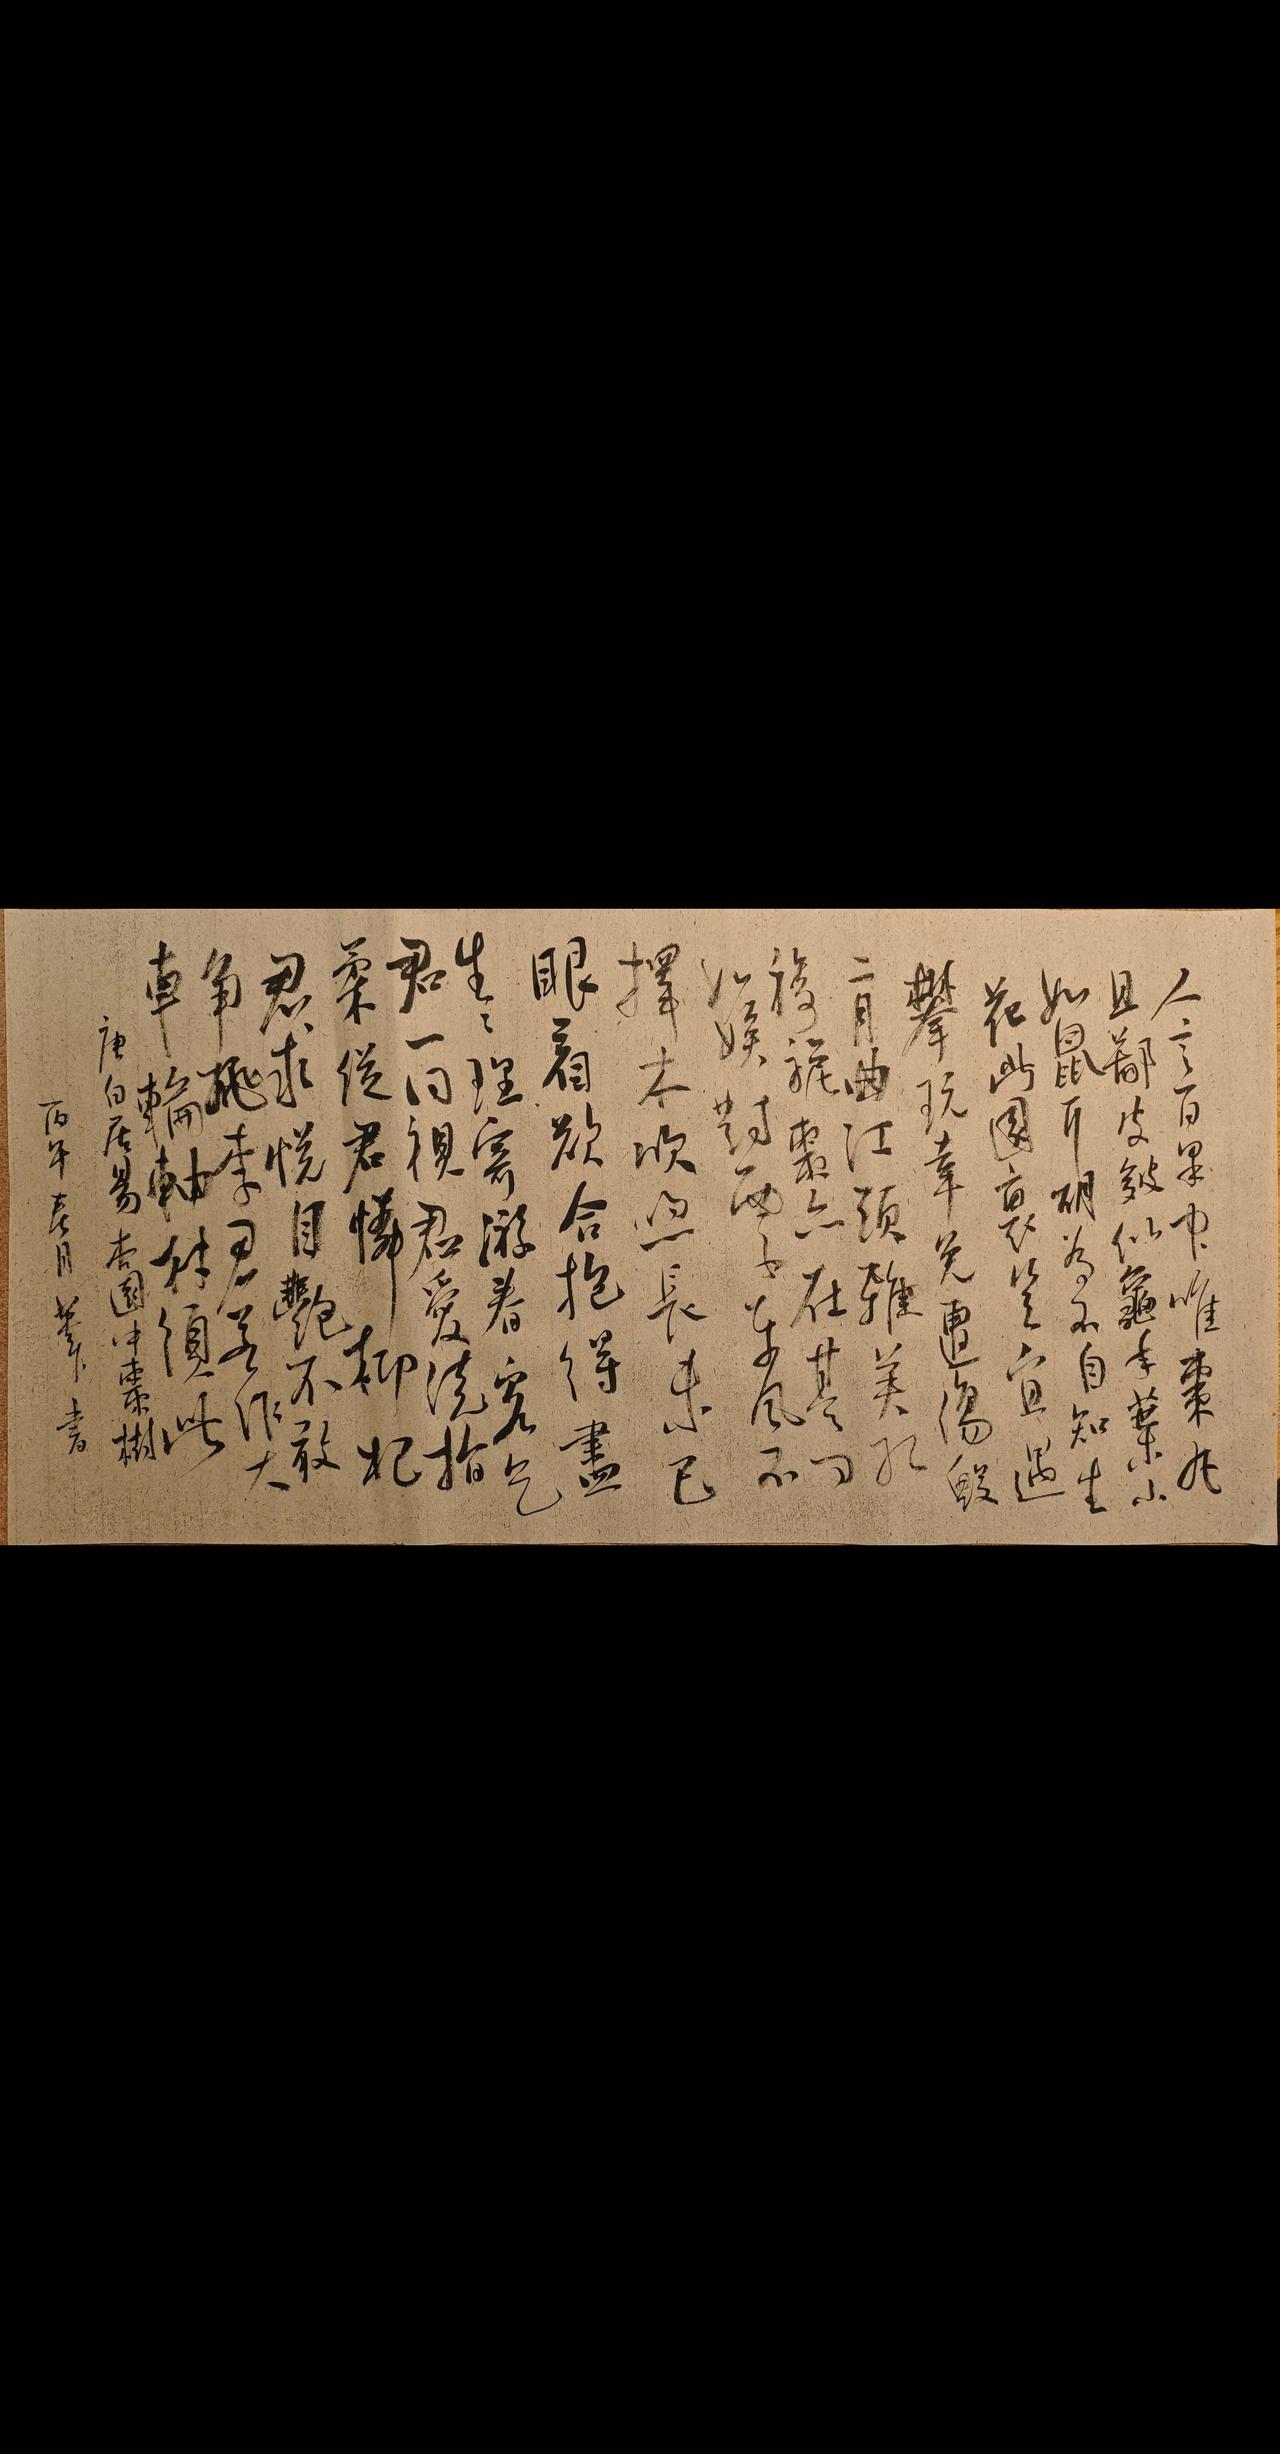 人言百果中唯棗凡
且鄙皮皴似龜手葉小
如鼠耳胡為不自知生
花此園裏豈宜遇
攀玩幸免遭傷毀
二月曲江頭雜英紅
旖旎棗亦在其間
如嫫對西子東風不
擇木吹煦長未已
眼看欲合抱得盡
生〻理寄游春客乞
君一回視君愛繞指
柔從君憐柳杞
君求悅目艷不敢
爭桃李君若作大
車輪軸材須此
唐白居易杏園中棗樹
丙午春月 書